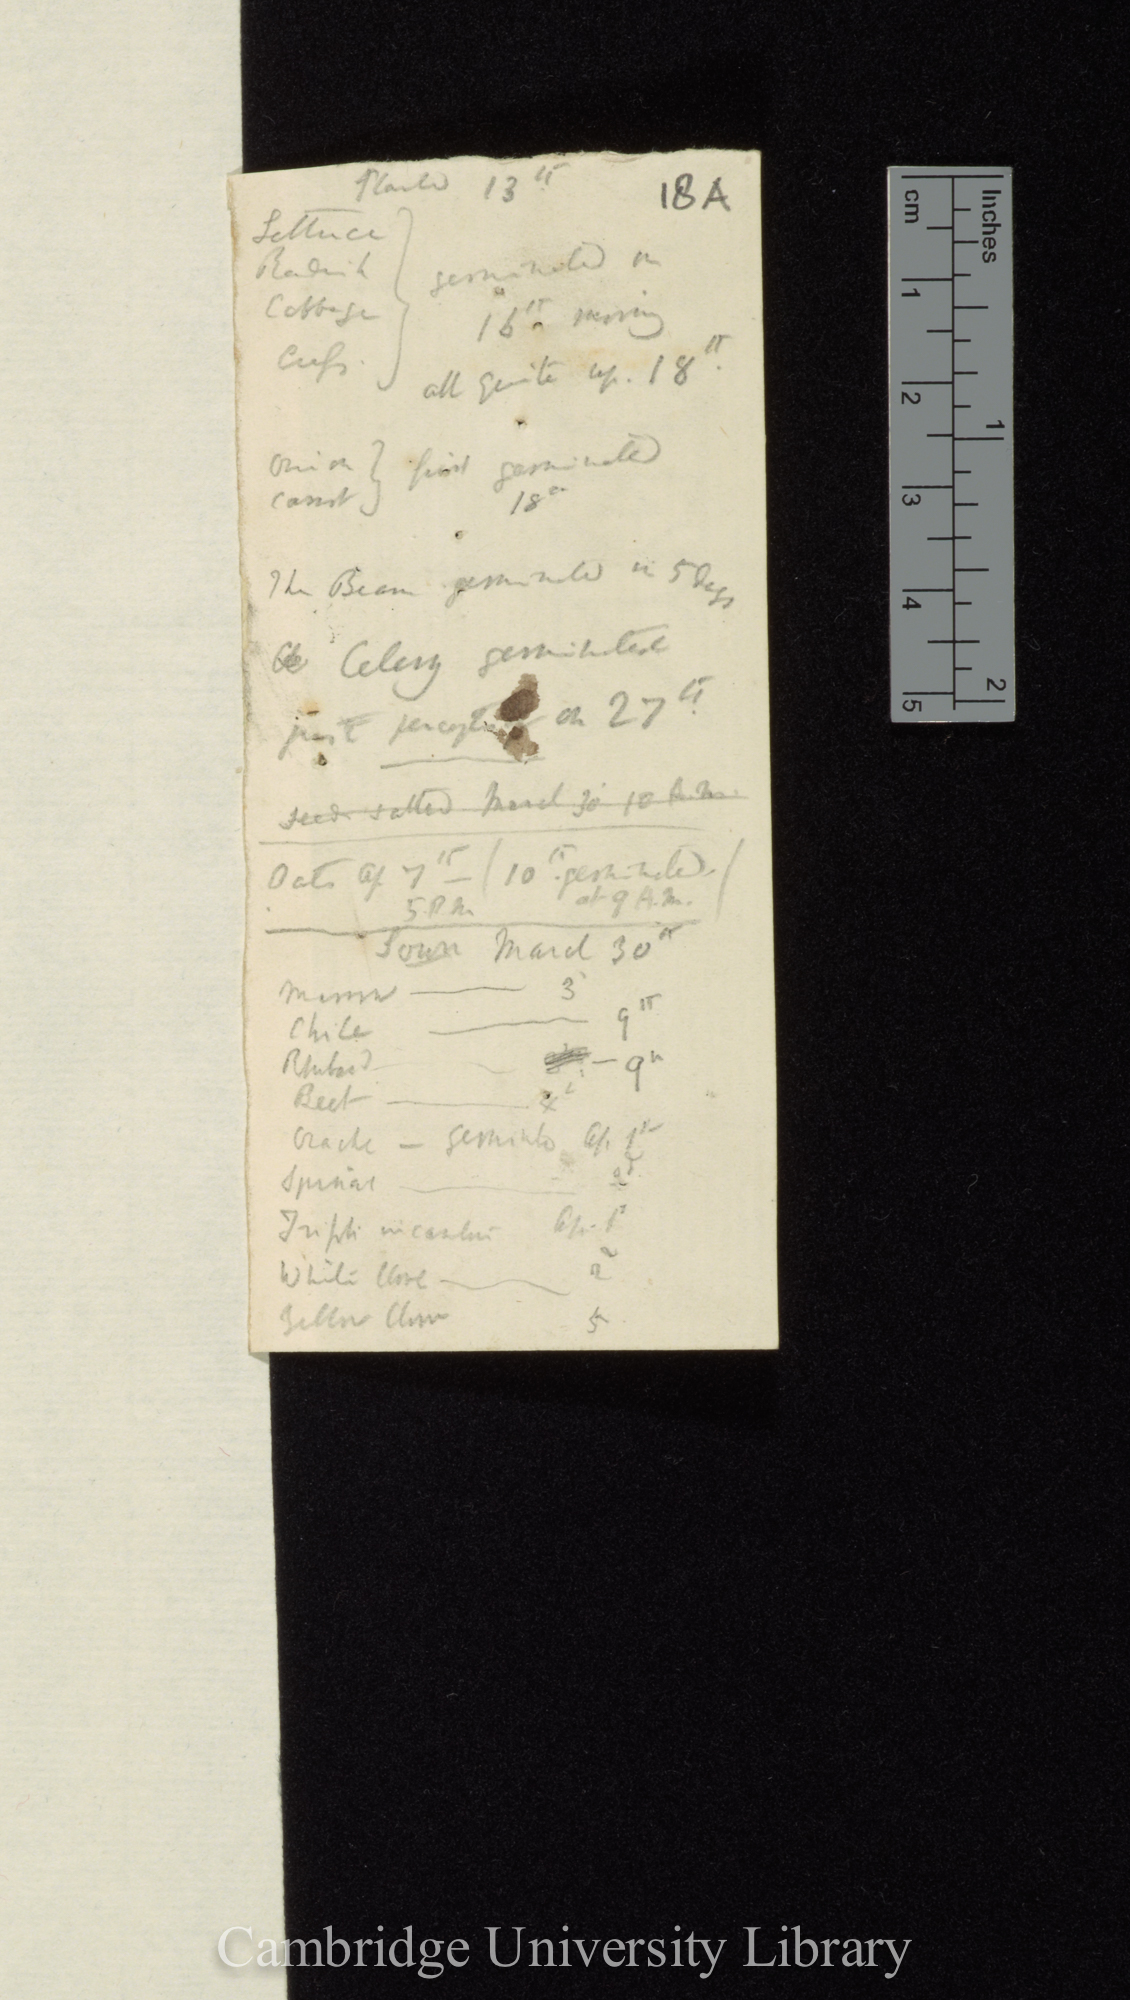 Planted 13th
18A
Lettuce
Radish
Cabbage
Cress.
germinated on
16th morning
all quite up. 18th.
Onion
Carrot
first germinated
18th
The Bean germinated in 5 Days
Celery germinated
just perceptibly on 27th
seeds salted March 30 10 A.m.
Oats Ap 7th — ( 10th germinated. (
5 P.M at 9 A.m.
Sown March 30th
3
Chile — 9th
Rhubarb — 9th
Beet — 4
Orache — germinated Ap. 1st
Spinach — 2d
Trifol: incarnatum Ap. 1st
White Clover — 2d
Yellow Clover 5
cm Inches
1 2 3 4 5
1 2
Cambridge University Library